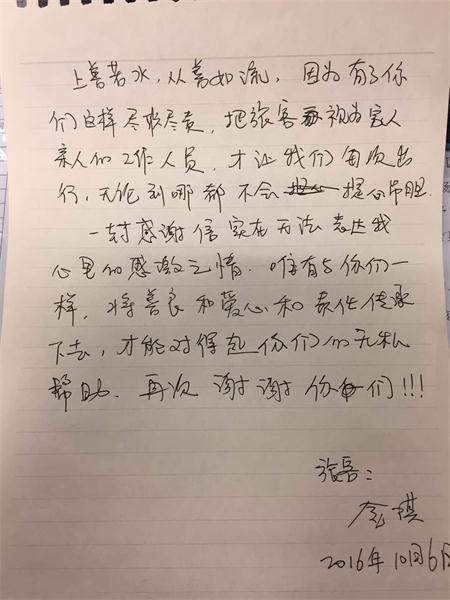 上善若水，从善如流，因为有了你
们这样尽职尽责，把旅客视为家人
亲人的工作人员，才让我们每次出
行，无论到哪都不会提心吊胆.
一封感谢信实在无法表达我
心里的感激之情.唯有与你们一
样，将善良和爱心和责任传承
下去，才能对得起你们的无私
帮助.再次谢谢你们!!!
旅客:
琪
2016年10月6日